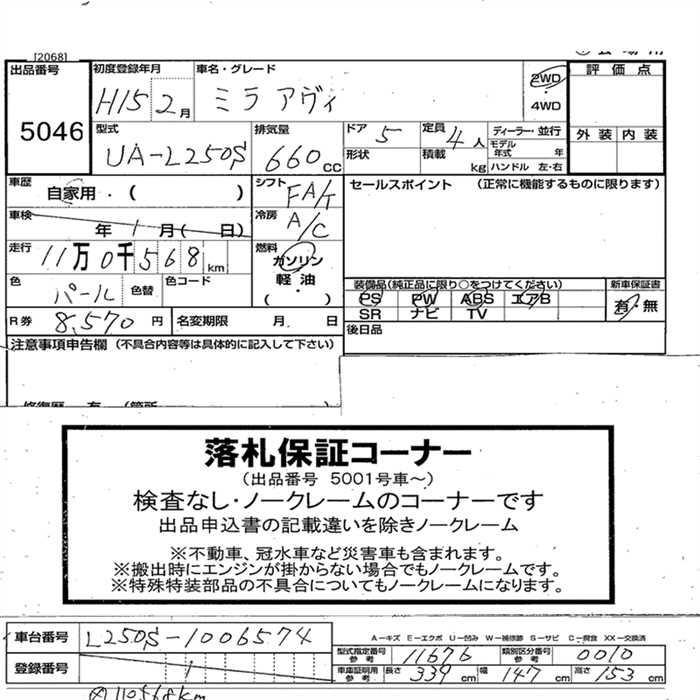 [2068]
出品番号 初度登録年月 車名・グレード 評価点
5046 H15 2月 ミラアヴィ 2WD 4WD
外装 内装
型式 排気量 ドア 5 定員 4人 ディーラー・並行
UA-L250S 660cc 形状 積載 kg モデル年式 年 ハンドル 左・右
車歴 自家用・( ) シフト FA/T セールスポイント (正常に機能するものに限ります)
車検 年 1月(日) 冷房 A/C
走行 11万0千568km 燃料 ガソリン 軽油 (・)
色 パール 色替 色コード 装備品(純正品に限り○をつけてください) 新車保証書
PS PW ABS エアB 有・無
SR ナビ TV
R券 8,570円 名変期限 月 日 後日品
注意事項申告欄 (不具合内容等は具体的に記入して下さい)
修復歴 有 (箇所
落札保証コーナー
(出品番号 5001号車~)
検査なし・ノークレームのコーナーです
出品申込書の記載違いを除きノークレーム
※不動車、冠水車など災害車も含まれます。
※搬出時にエンジンが掛からない場合でもノークレームです。
※特殊特装部品の不具合についてもノークレームになります。
車台番号 L250S-1006574
A-キズ E-エクボ U-凹み W-補修跡 S-サビ C-腐食 XX-交換済
型式指定番号 参考 11676 類別区分番号 参考 0010
登録番号 車庫証明用 参考 長さ 339cm 幅 147cm 高さ 153cm
110568km